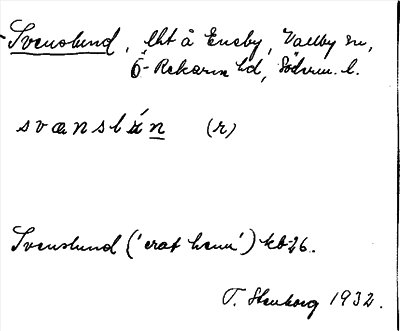 Svenslund, lht å Eneby, Vallby sn,
Ö-Rekarne hd, Söderm. l.
svænslún (r)
Svenslund ('erat hemm') kb-26.
T. Stenborg 1932.